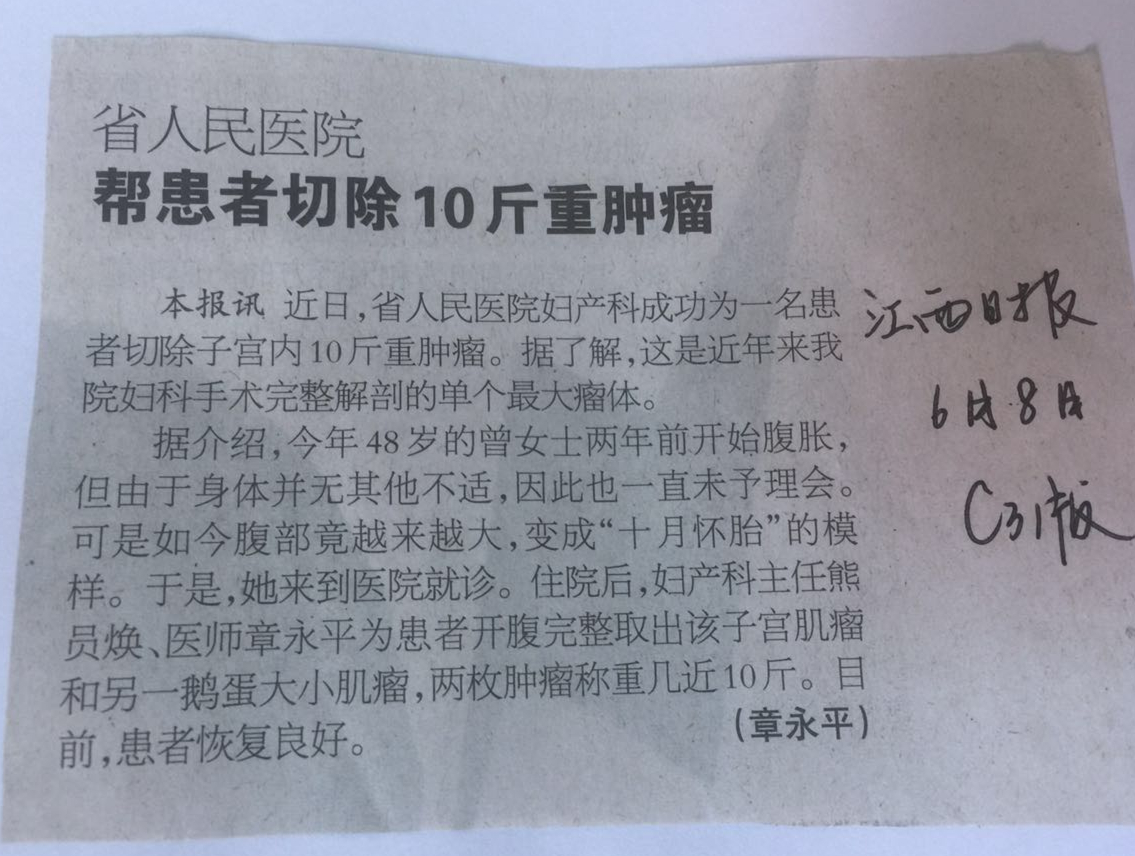 省人民医院
帮患者切除10斤重肿瘤
本报讯 近日,省人民医院妇产科成功为一名患
者切除子宫内10斤重肿瘤。据了解,这是近年来我
院妇科手术完整解剖的单个最大瘤体。
据介绍,今年48岁的曾女士两年前开始腹胀,
但由于身体并无其他不适,因此也一直未予理会。
可是如今腹部竟越来越大,变成“十月怀胎”的模
样。于是,她来到医院就诊。住院后,妇产科主任熊
员焕、医师章永平为患者开腹完整取出该子宫肌瘤
和另一鹅蛋大小肌瘤,两枚肿瘤称重几近10斤。目
前,患者恢复良好。
(章永平)
江西日报
6月8日
C31版